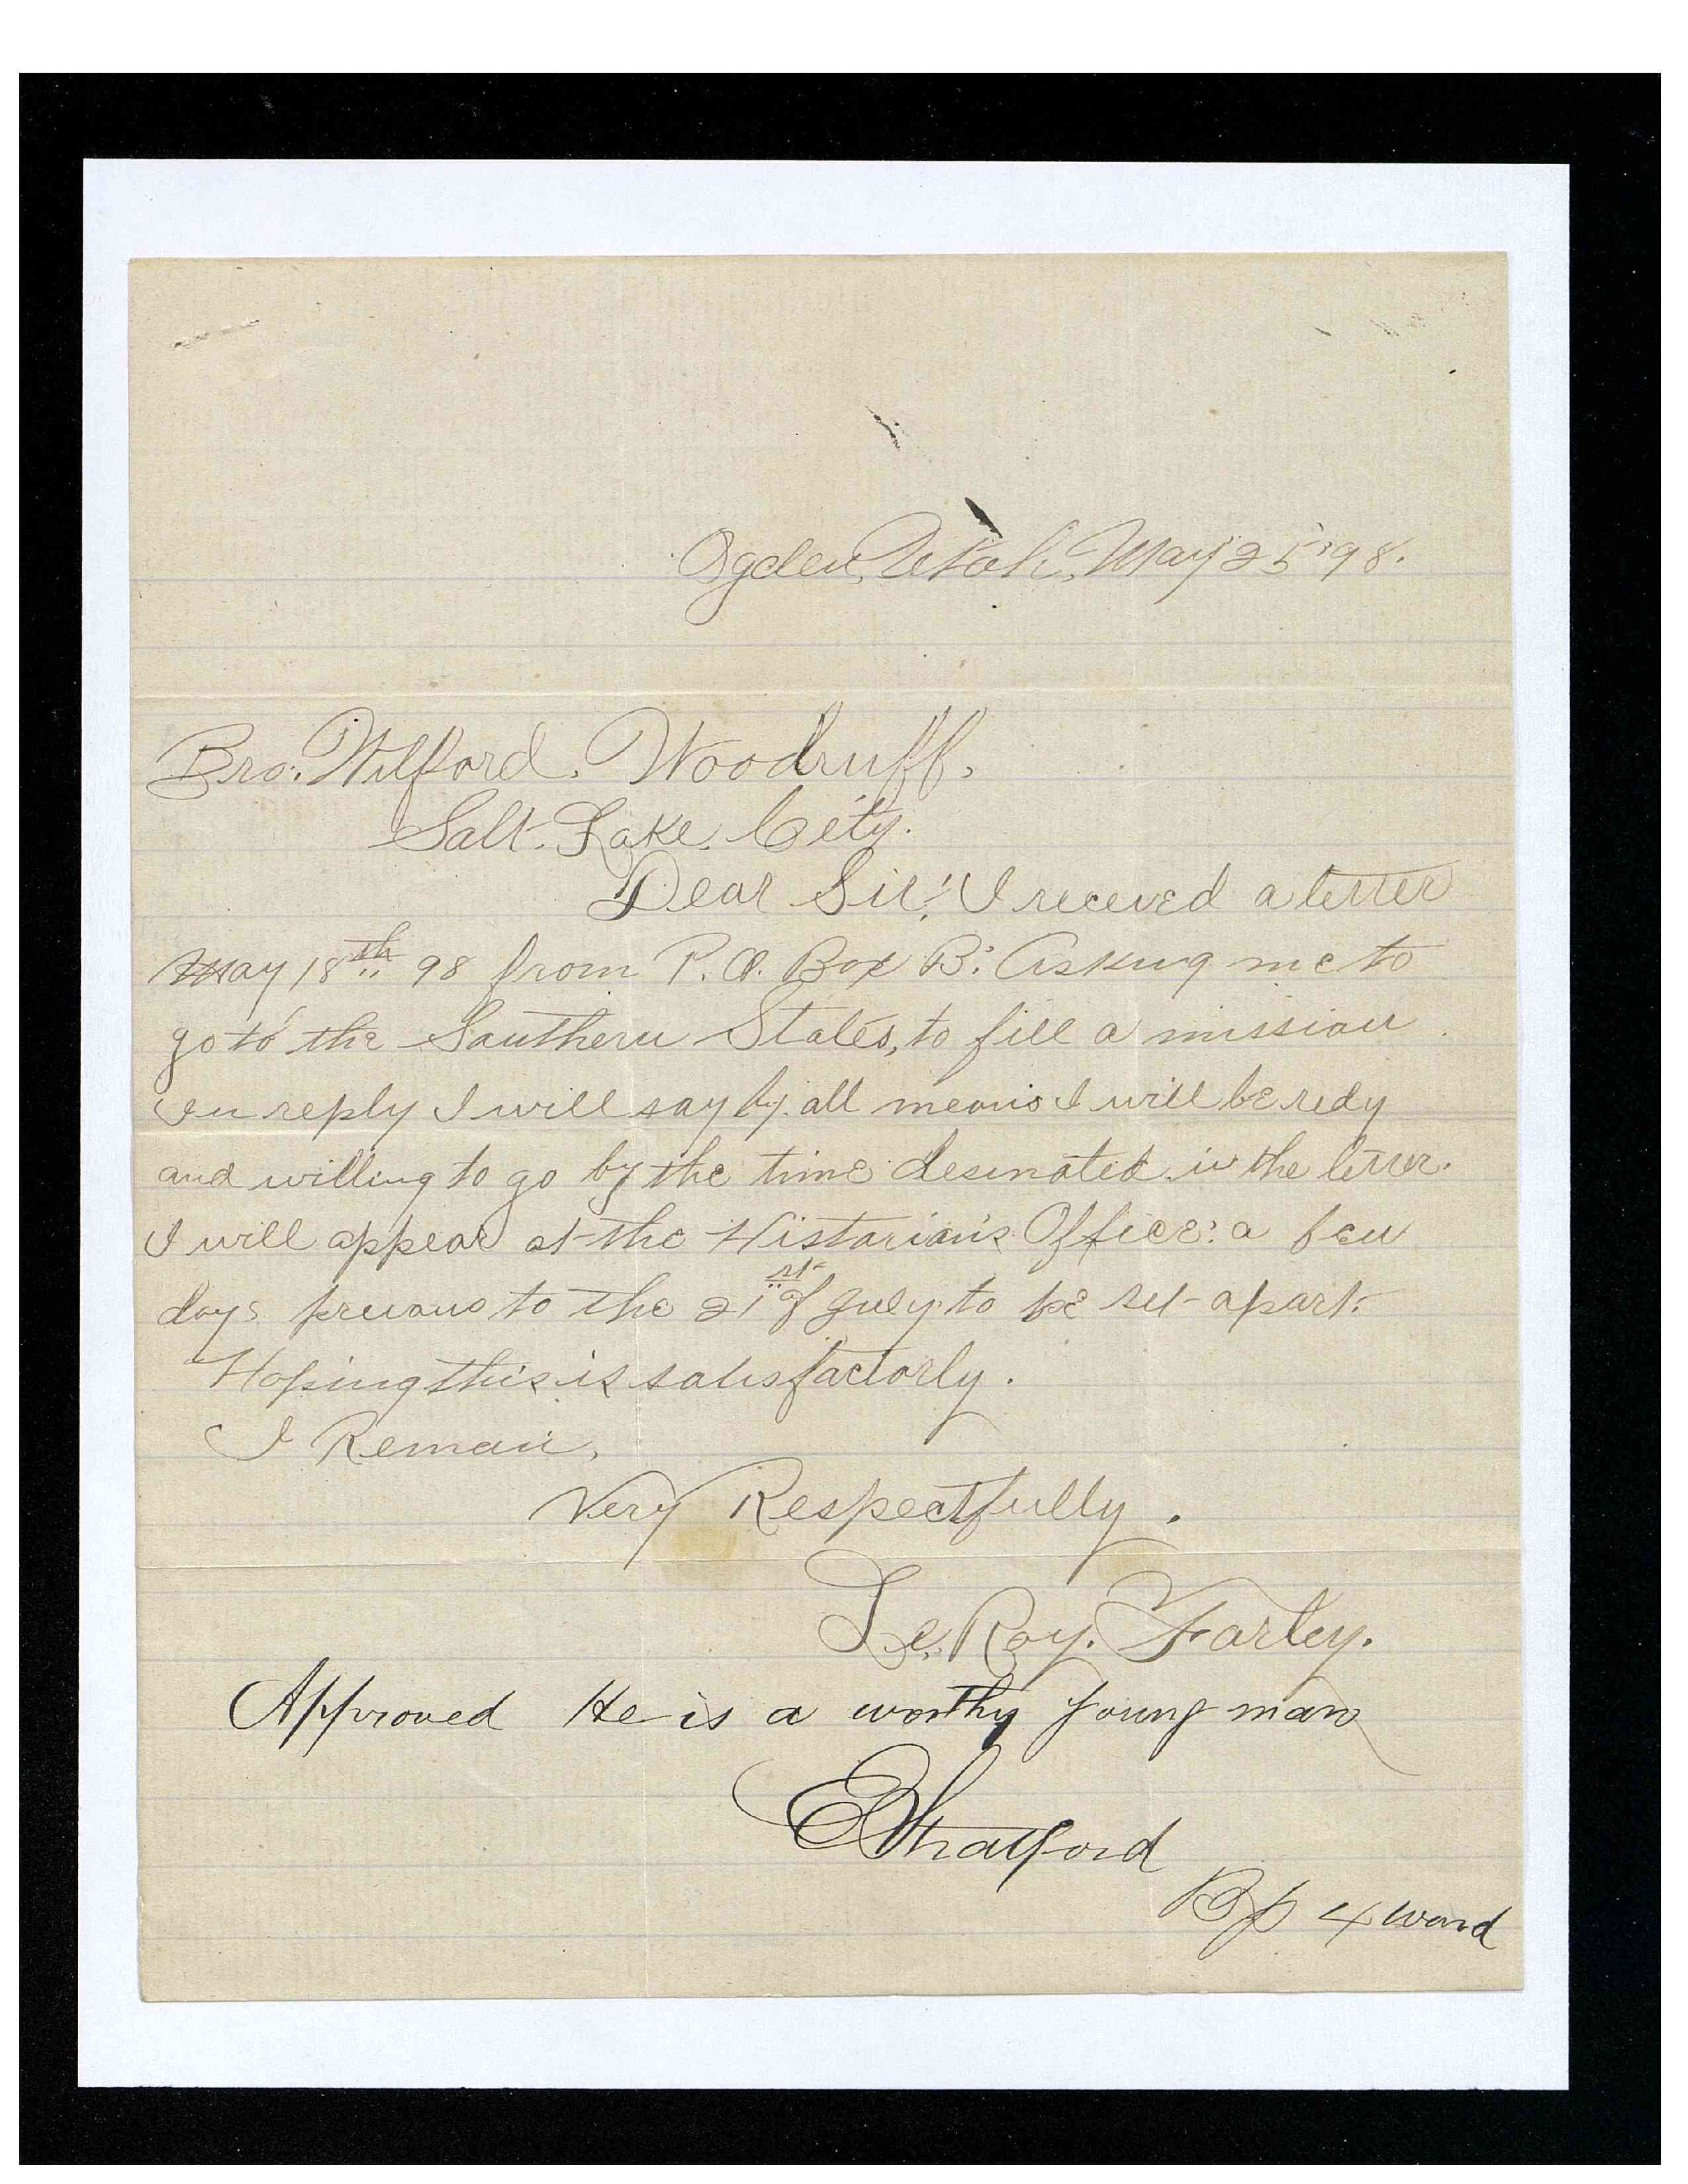 Ogden, Utah, May 25 '98.
Bro. Wilford. Woodruff.
Salt. Lake. City.
Dear Sir:! I receved a letter
May 18th 98 from P.O. Box B: Asking me to
go to the Southern States, to fill a mission
In reply I will say by all means I will be redy
and willing to go by the time desinated in the letter.
I will appear at the Historian's Office: a few
days prevous to the 21st of July to be set-apart.
Hoping this is satisfactorly.
I Remain,
Very Respectfully.
Le, Roy. Farley.
Approved He is a worthy young man
E Stratford
Bp 4 Ward